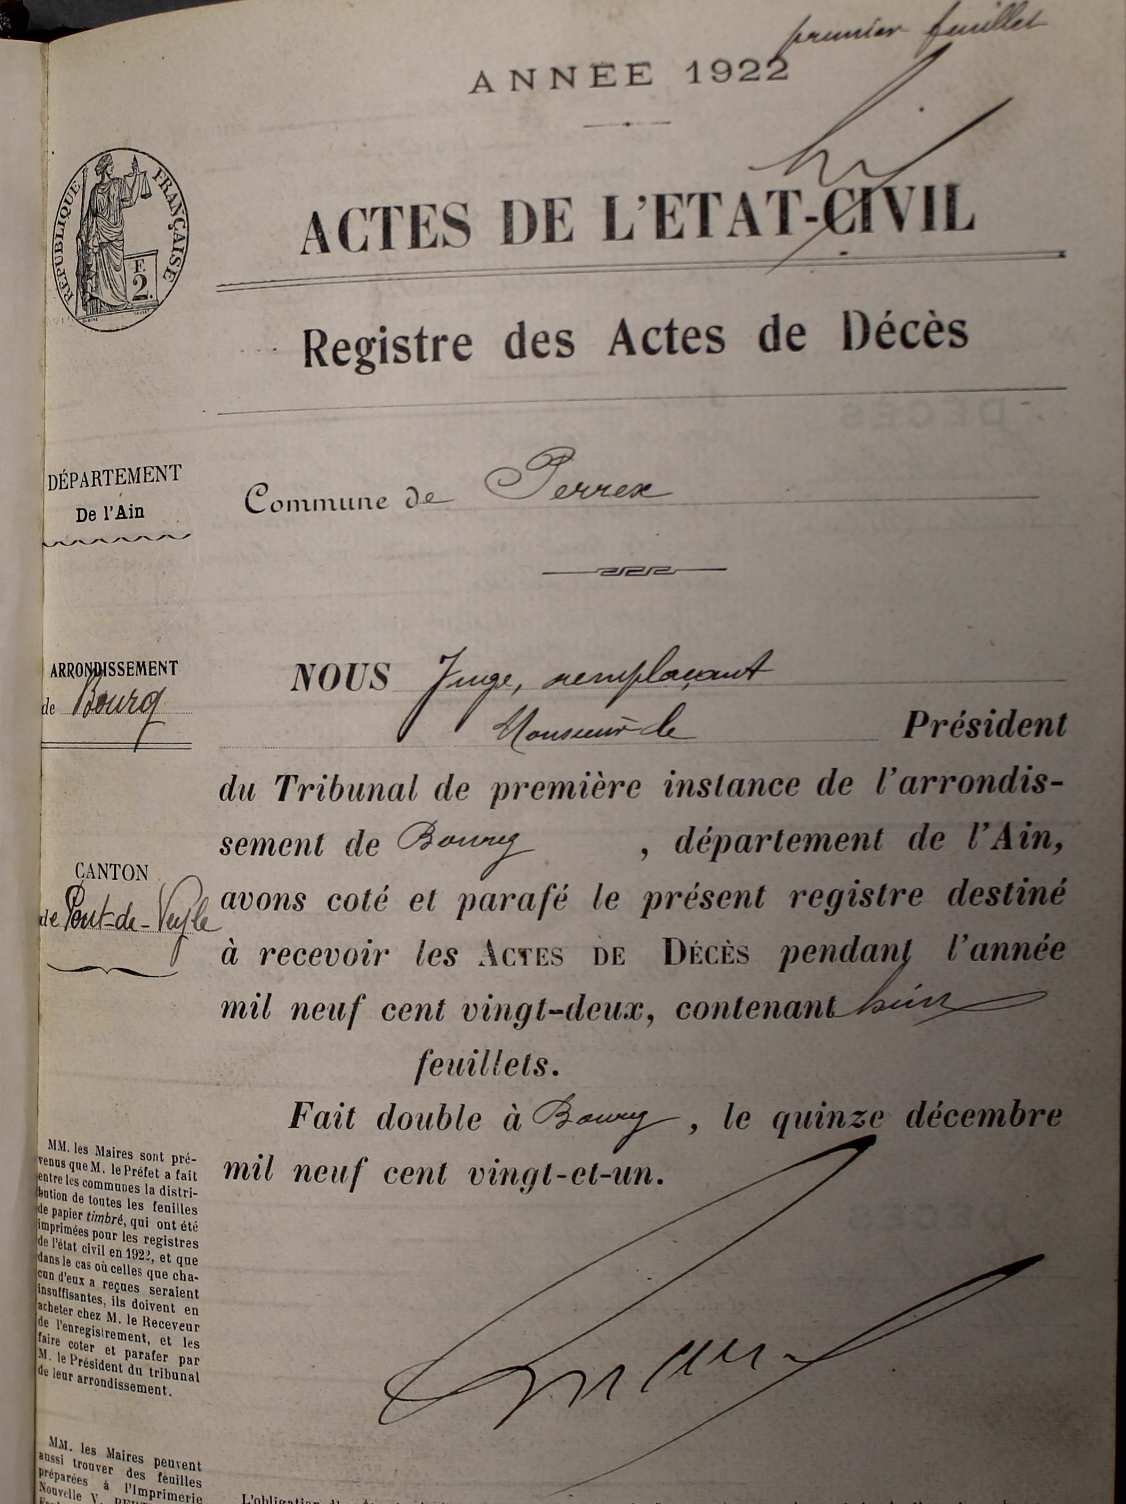 premier feuillet
ANNÉE 1922
RÉPUBLIQUE FRANÇAISE
F.
2.
ACTES DE L'ETAT-CIVIL
Registre des Actes de Décès
DÉPARTEMENT
De l'Ain
Commune de Perrex
ARRONDISSEMENT
de Bourg
NOUS Juge, remplaçant
Monsieur le Président
du Tribunal de première instance de l'arrondis-
sement de Bourg, département de l'Ain,
CANTON
de Pont-de-Veyle
avons coté et parafé le présent registre destiné
à recevoir les ACTES DE DÉCÈS pendant l'année
mil neuf cent vingt-deux, contenant huit
feuillets.
Fait double à Bourg, le quinze décembre
mil neuf cent vingt-et-un.
MM. les Maires sont pré-
venus que M. le Préfet a fait
entre les communes la distri-
bution de toutes les feuilles
de papier timbré, qui ont été
imprimées pour les registres
de l'état civil en 1922, et que
dans le cas où celles que cha-
cun d'eux a reçues seraient
insuffisantes, ils doivent en
acheter chez M. le Receveur
de l'enregistrement, et les
faire coter et parafer par
M. le Président du tribunal
de leur arrondissement.
MM. les Maires peuvent
aussi trouver des feuilles
préparées à l'Imprimerie
Nouvelle V.
L'obligation